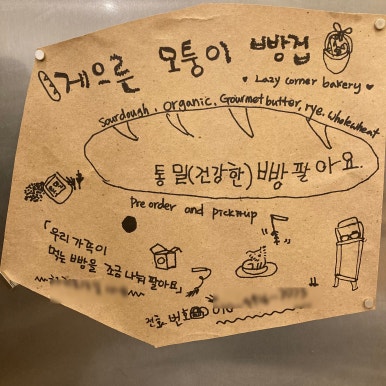 게으른 모퉁이 빵집
♥ Lazy corner bakery ♥
Sourdough, organic, Gourmet butter, rye, wholewheat
통밀(건강한) 빵 팔아요.
Pre order and pick up
「우리 가족이
먹는 빵을 조금 나눠 팔아요」
전화번호 ☎ 010